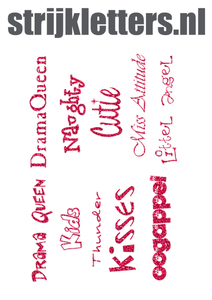 strijkletters.nl
DramaQueen
Naughty
Cutie
Miss Attitude
Littel angel
DRAMA QUEEN
Kids
Thunder
kisses
oogappel